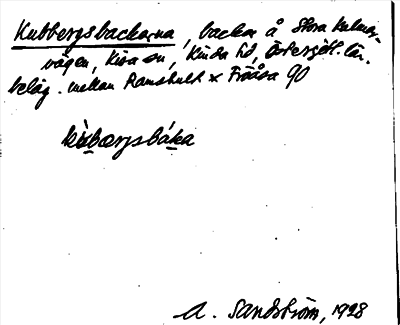 Kubbergsbackarna, backar å Stora Kalmar-
vägen, Kisa sn, Kinda hd, Östergötl. län.
beläg. mellan Ramshult & Fröåsa 90
kùbærgsbáka
A. Sandström, 1928